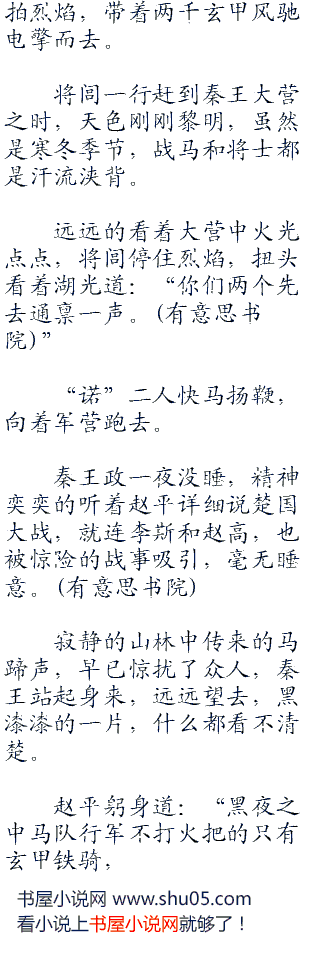 拍烈焰，带着两千玄甲风驰
电擎而去。
将闾一行赶到秦王大营
之时，天色刚刚黎明，虽然
是寒冬季节，战马和将士都
是汗流浃背。
远远的看着大营中火光
点点，将闾停住烈焰，扭头
看着湖光道：“你们两个先
去通禀一声。(有意思书
院)”
“诺”二人快马扬鞭，
向着军营跑去。
秦王政一夜没睡，精神
奕奕的听着赵平详细说楚国
大战，就连李斯和赵高，也
被惊险的战事吸引，毫无睡
意。(有意思书院)
寂静的山林中传来的马
蹄声，早已惊扰了众人，秦
王站起身来，远远望去，黑
漆漆的一片，什么都看不清
楚。
赵平躬身道：“黑夜之
中马队行军不打火把的只有
玄甲铁骑，
书屋小说网 www.shu05.com
看小说上书屋小说网就够了！